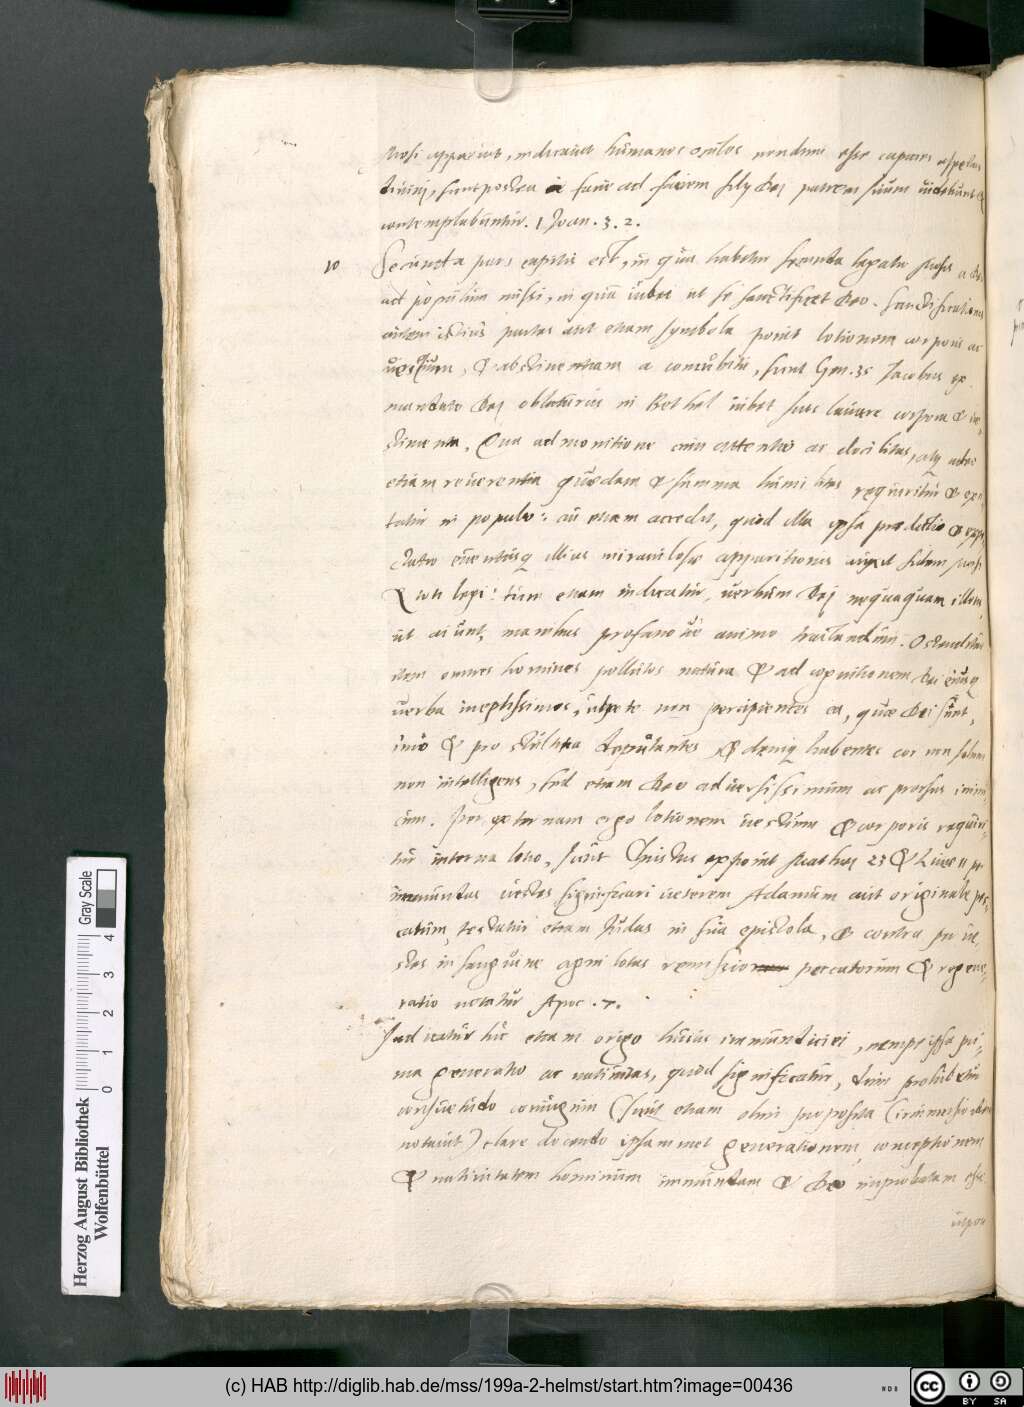 Mosi apparens, indicavit humanos oculos nondum esse capaces aspectus
divini, sunt postea facie ad faciem filij Dej patrem suum videbunt &
contemplabuntur. 1 Joan. 3. 2.
10 Secunda pars capitis est, in qua habetur secunda legatio Mosis a Deo
ad populum missi, in qua iubet ut se sanctificet Deo. Sanctificationis
autem istius partes aut etiam symbola ponit lotionem corporis ac
vestium, & abstinentiam a concubitu, sicut Gen. 35 Jacobus ex
mandato Dej oblaturus in Bethel iubet suos lavare corpora & ve-
stimenta. Qua admonitione cum attentio ac docilitas, atq adeo
etiam reverentia quaedam & summa humilitas requiritur &
tatur in populo: cui etiam accedit, quod illa ipsa praedictio & exspe
ctatio eventusq illius miraculosae apparitionis auget fidem
legi: tum etiam indicatur, verbum Dej nequaquam
ut aiunt, manibus profano ve animo tractandum. Ostenditur
item omnes homines pollutos natura & ad cognitionem Dei eiusq
verba ineptissimos, utpote non percipientes ea, quae Dei sunt,
imo & pro stultitia deputantes & deniq habentes cor non solum
non intelligens, sed etiam Deo adversissimum ac prorsus inimi-
cum. Per externam ergo lotionem vestium & corporis requiri-
tur interna lotio, sicut Christus exponit Matthaej 23 & Lucae 11 per
immunitas vestes significari veterem Adamum aut originale pec-
catum, testatur etiam Judas in sua epistola, & contra per ve-
stes in sanguine agni lotas remissio peccatorum & regene-
ratio notatur Apoc. 7.
Indicatur hic etiam origo huius immunditiei, nempe ipsa pri-
ma generatio ac nativitas, quod significatur, dum prohibetur
consuetudo coniugum (sicut etiam olim proposita
notavit) clare docendo ipsammet generationem, conceptionem
& nativitatem hominum immundam & Deo improbatam esse